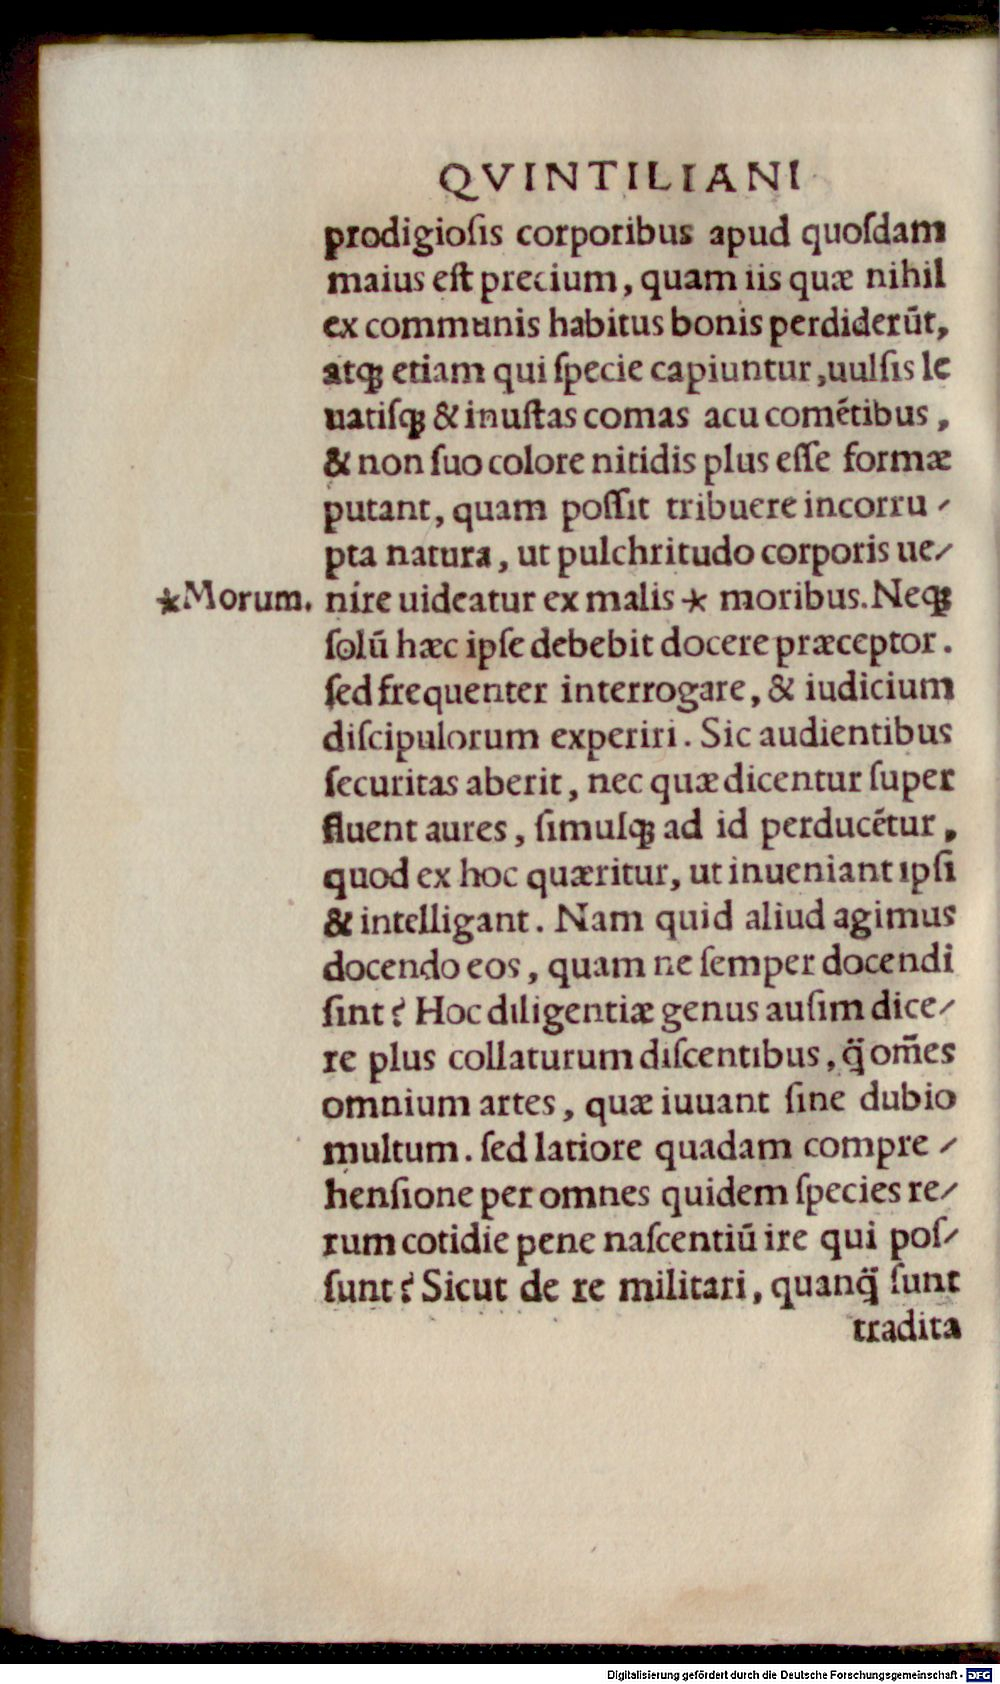 QVINTILIANI
prodigioſis corporibus apud quoſdam
maius eſt precium, quam iis quæ nihil
ex communis habitus bonis perdiderūt,
atq; etiam qui ſpecie capiuntur, uulſis le
uatiſq; & inuſtas comas acu comētibus,
& non ſuo colore nitidis plus eſſe formæ
putant, quam poſſit tribuere incorru⸗
pta natura, ut pulchritudo corporis ue⸗
*Morum. nire uideatur ex malis * moribus. Neq;
ſolū hæc ipſe debebit docere præceptor.
ſed frequenter interrogare, & iudicium
diſcipulorum experiri. Sic audientibus
ſecuritas aberit, nec quæ dicentur ſuper
fluent aures, ſimulq; ad id perducētur,
quod ex hoc quæritur, ut inueniant ipſi
& intelligant. Nam quid aliud agimus
docendo eos, quam ne ſemper docendi
ſint? Hoc diligentiæ genus auſim dice⸗
re plus collaturum diſcentibus, q̄̈ om̄es
omnium artes, quæ iuuant ſine dubio
multum. ſed latiore quadam compre⸗
henſione per omnes quidem ſpecies re⸗
rum cotidie pene naſcentiū ire qui poſ⸗
ſunt? Sicut de re militari, quanq̄̈ ſunt
tradita
Digitalisierung gefördert durch die Deutsche Forschungsgemeinschaft - DFG